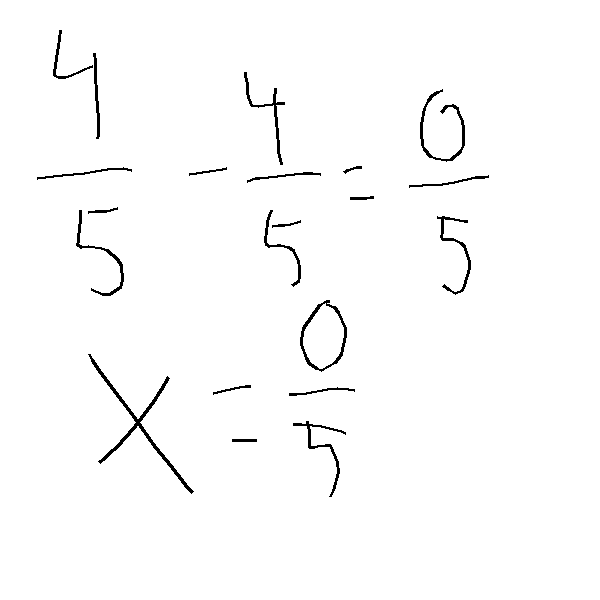 4/5 - 4/5 = 0/5
x = 0/5